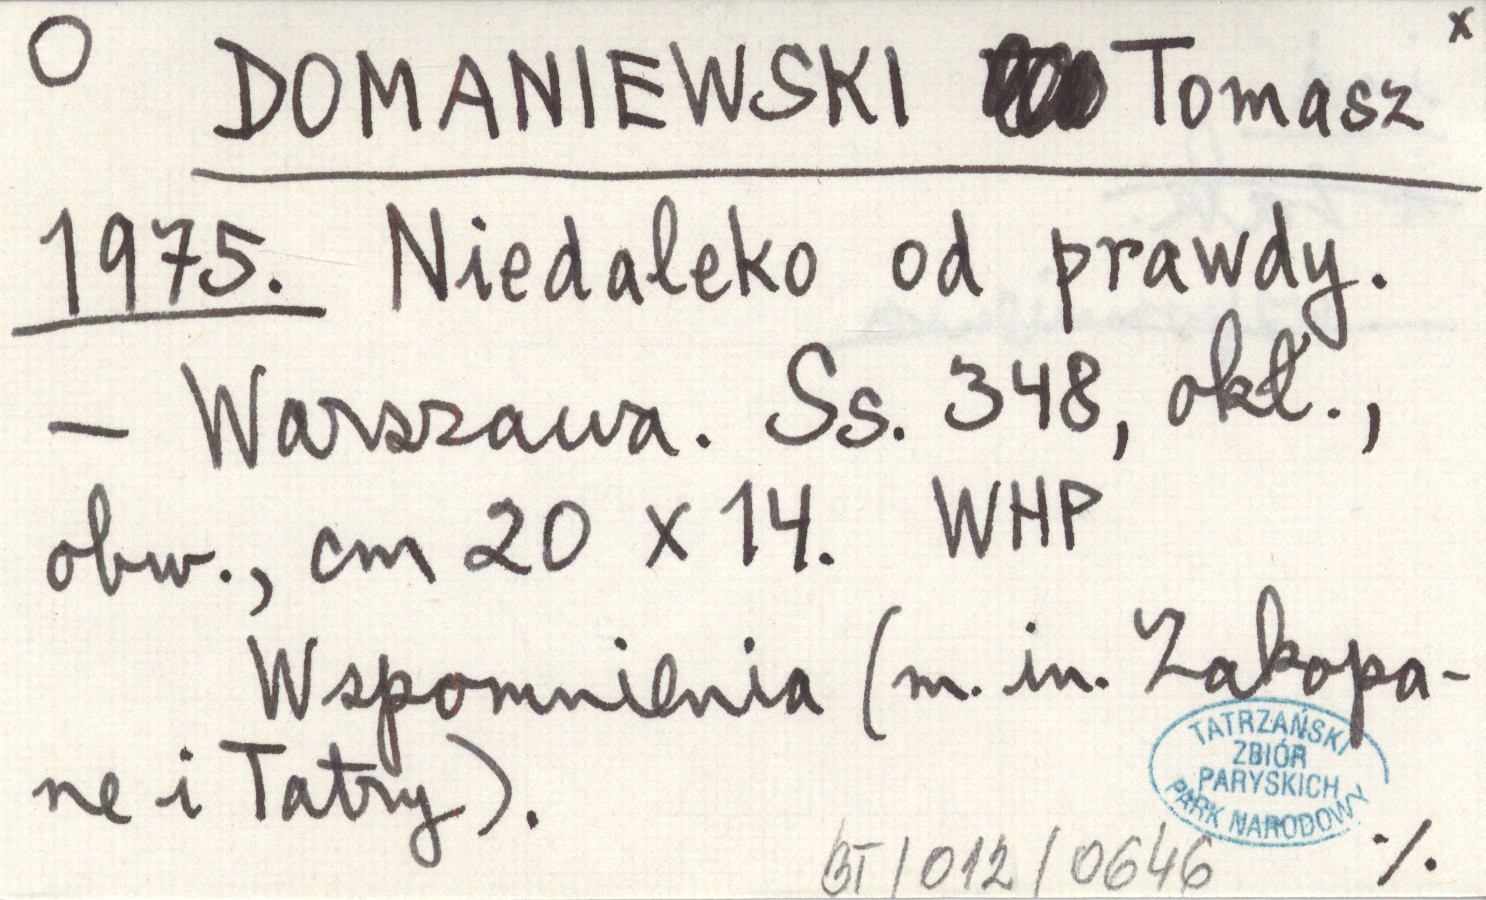 O DOMANIEWSKI Tomasz x
1975. Niedaleko od prawdy.
— Warszawa. Ss. 348, okł.,
obw., cm 20 x 14. WHP
Wspomnienia (m. in. Zakopa-
ne i Tatry).
TATRZAŃSKI
ZBIÓR
PARYSKICH
PARK NARODOWY
BT/012/0646 ./.